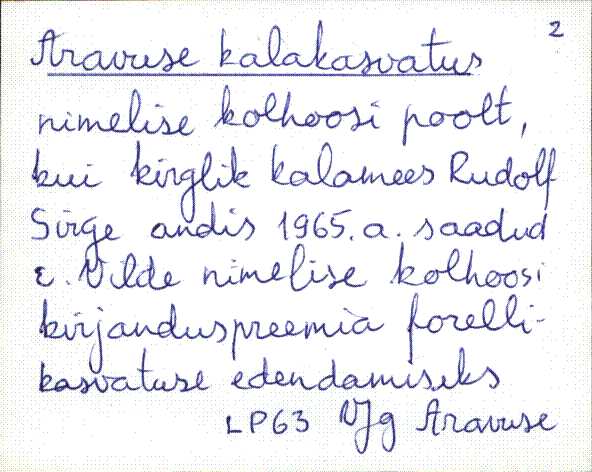 2
Aravuse kalakasvatus
nimelise kolhoosi poolt,
kui kirglik kalamees Rudolf
Sirge andis 1965. a. saadud
E. Vilde nimelise kolhoosi
kirjanduspreemia forelli-
kasvatuse edendamiseks
LP63 VJg Aravuse